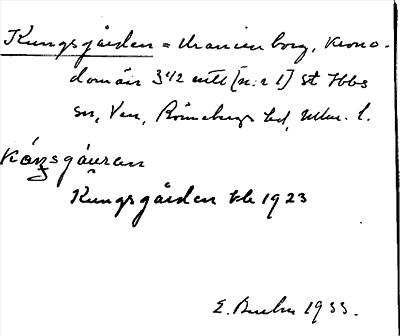 Kungsgården = Uranienborg, krono-
domän 3 1/2 mtl [n:r 1] St Ibbs
sn, Ven, Rönnebergs hd, Mlm. l.
kóŋsgáuran
Kungsgården tb 1923
E. 1933.